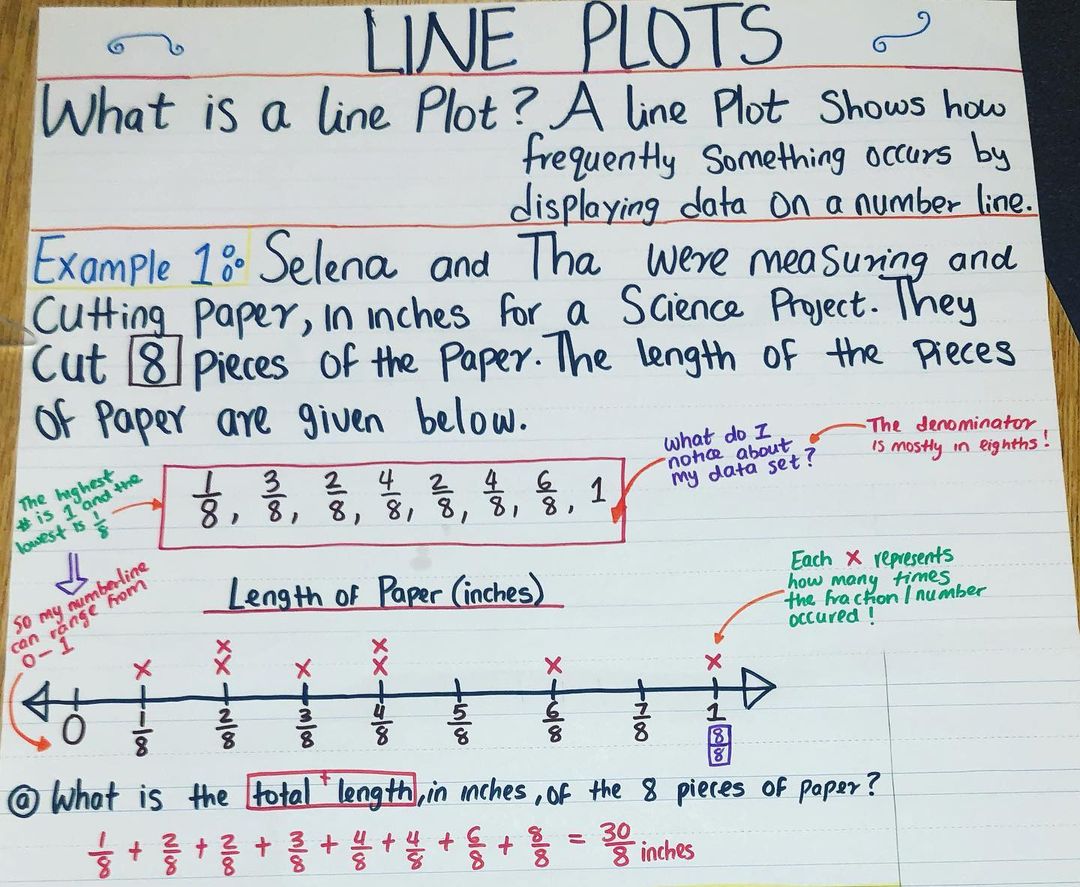 LINE PLOTS
What is a line Plot? A line Plot Shows how
frequently Something occurs by
displaying data on a number line.
Example 1: Selena and Tha were measuring and
Cutting Paper, in inches for a Science Project. They
Cut 8 Pieces of the Paper. The length of the Pieces
of Paper are given below.
The denominator
is mostly in eighths!
What do I
notice about
my data set?
The highest
# is 1 and the
lowest is 1/8
1/8, 3/8, 2/8, 4/8, 2/8, 4/8, 6/8, 1
So my numberline
can range from
0-1
Length of Paper (inches)
Each x represents
how many times
the fraction/number
occured!
x x x x
x x x x x x
0 1/8 2/8 3/8 4/8 5/8 6/8 7/8 1
8/8
@ What is the total + length, in inches, of the 8 pieces of paper?
1/8 + 2/8 + 2/8 + 3/8 + 4/8 + 4/8 + 6/8 + 8/8 = 30/8 inches